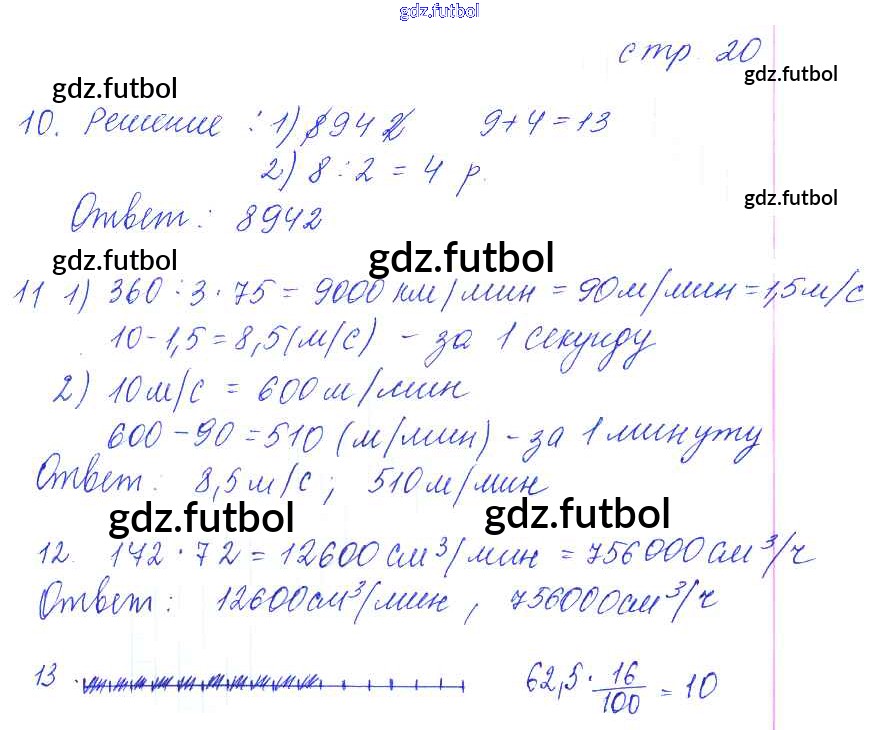 gdz.futbol
стр. 20
gdz.futbol
gdz.futbol
10. Решение : 1) 8942 9+4=13
2) 8 : 2 = 4 р.
gdz.futbol
Ответ : 8942
gdz.futbol
gdz.futbol
11 1) 360 : 3 · 75 = 9000 км/мин = 90 м/мин = 1,5 м/с
10 - 1,5 = 8,5 (м/с) - за 1 секунду
2) 10 м/с = 600 м/мин
600 - 90 = 510 (м/мин) - за 1 минуту
Ответ : 8,5 м/с ; 510 м/мин
gdz.futbol
gdz.futbol
12. 142 · 72 = 12600 см³/мин = 756000 см³/ч
Ответ : 12600 см³/мин , 756000 см³/ч
13 . 62,5 · 16/100 = 10